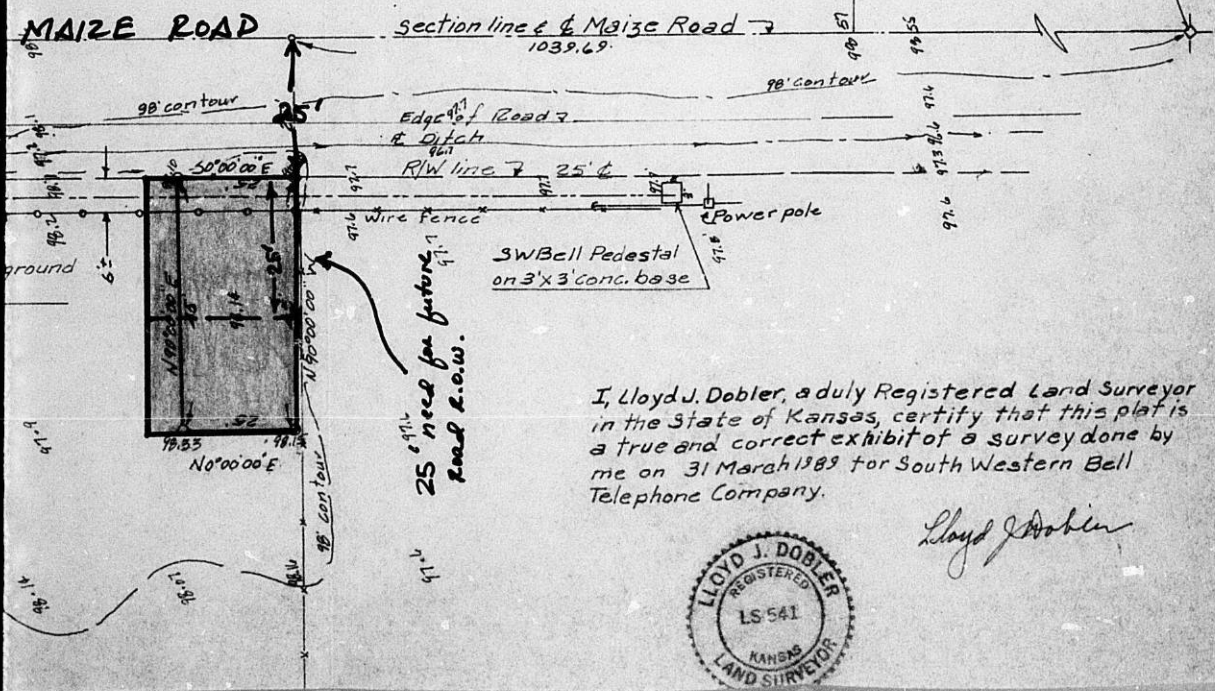 MAIZE ROAD
Section line & ℄ Maize Road
1039.69
98.57
98.55
98' contour
98' contour
25'
Edge of Road
97.7
97.4
℄ Ditch
96.7
R/W line 25' ℄
97.3 96.6
S0°00'00"E
25
98.2
97.6
Wire Fence
97.7
97.7
97.7
Power pole
97.8
97.6
SW Bell Pedestal
on 3'x3' conc. base
ground
6'±
N90°00'00"E
25'
98.14
N90°00'00"W
97.7
25' need for future
Road R.O.W.
97.6
98.33
25
98.13
N0°00'00"E
97.9
98' contour
I, Lloyd J. Dobler, a duly Registered Land Surveyor
in the State of Kansas, certify that this plat is
a true and correct exhibit of a survey done by
me on 31 March 1989 for South Western Bell
Telephone Company.
Lloyd J Dobler
98.14
98.07
98.11
97.4
LLOYD J. DOBLER
REGISTERED
LS 541
KANSAS
LAND SURVEYOR